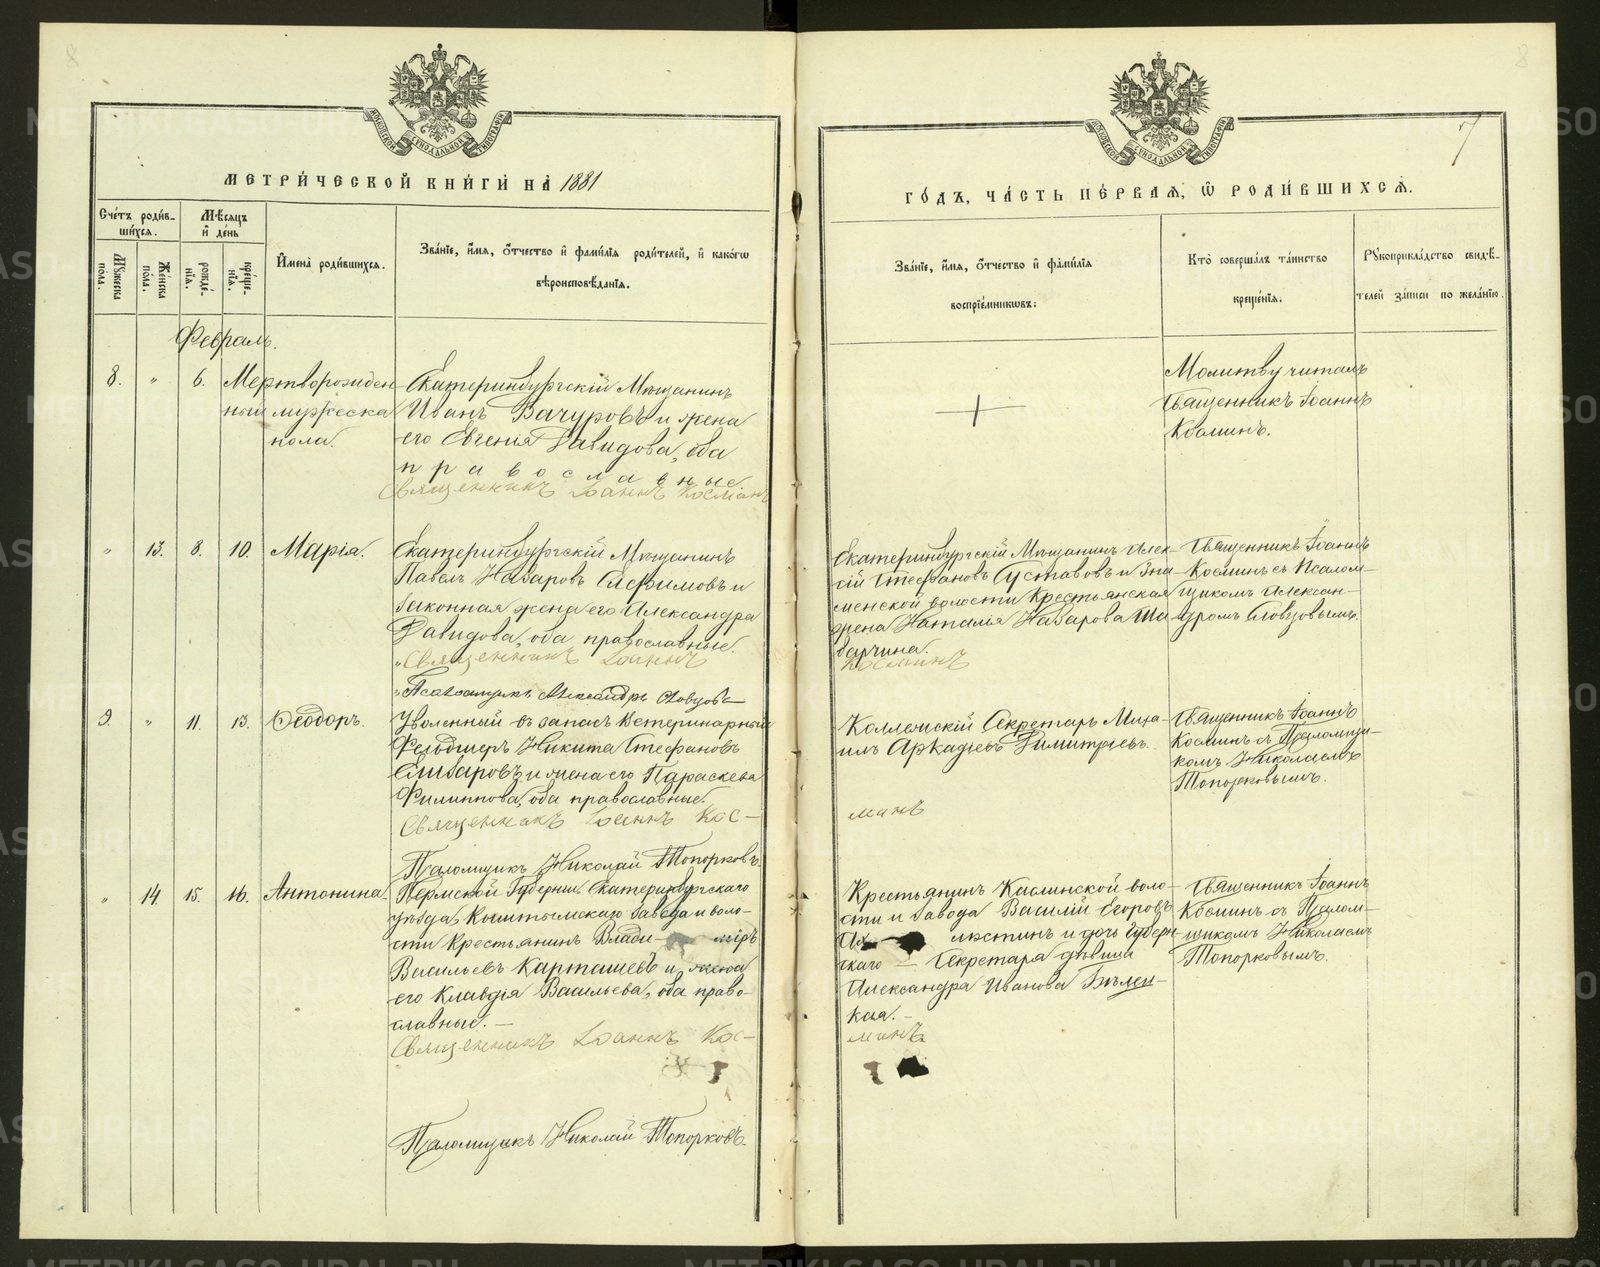 МЕТРИ́ЧЕСКОЙ КНИ́ГИ НА̀ 1881
Сче́тъ роди́в-
ши́хся.
Мѣ́сяцъ
и҆ де́нь
Му́жеска
по́ла.
Же́нска
по́ла.
рожде́-
нїѧ.
креще́-
нїѧ.
И҆мена̀ роди́вшихся.
Зва́нїе, и҆́мя, ѻ҆́тчество и҆ фами́лїя роди́телей, и҆ како́гѡ
вѣроисповѣ́данїя.
Февраль.
8.
"
6.
Мертворожден
ный мужеска
пола.
Екатеринбургскій Мѣщанинъ
Иванъ Вачуровъ и жена
его Евгенія Давидова, оба
православные
Священникъ Іоаннъ Косминъ
"
13.
8.
10.
Марія.
Екатеринбургскій Мѣщанинъ
Павелъ Назаровъ Ефимовъ и
законная жена его Александра
Давидова, оба православные.
"Священникъ Іоаннъ
"Псаломщикъ Александръ Словцовъ
9.
"
11.
13.
Ѳеодоръ.
Уволенный въ запасъ Ветеринарный
Фельдшеръ Никита Стефановъ
Елизаровъ и жена его Параскева
Филиппова, оба православные.
Священникъ Іоаннъ Кос-
Псаломщикъ Николай Топорковъ.
"
14
15.
16.
Антонина
Пермской Губерніи Екатеринбургскаго
уѣзда, Кыштымскаго Завода и воло-
сти Крестьянинъ Влади- міръ
Васильевъ Карташевъ и жена
его Клавдія Васильева, оба право-
славные. -
Священникъ Іоаннъ Кос-
Псаломщикъ Николай Топорковъ.
7
ГО́ДЪ, ЧА́СТЬ ПЕ́РВАЯ, Ѽ РОДИ́ВШИХСЯ.
Зва́нїе, и҆́мя, ѻ҆́тчество и҆ фами́лїя
воспрїе́мникѡвъ:
Кто̀ соверша́лъ та́инство
креще́нїя:
Рꙋкоприкла́дство свидѣ́-
телей за́писи по жела́нїю.
Молитву читалъ
Священникъ Іоаннъ
Косминъ.
Екатеринбургскій Мѣщанинъ Алек-
сій Стефановъ Суставовъ и Зна-
менской волости Крестьянская
жена Наталія Назарова Ша-
барчина.
Косминъ
Священникъ Іоаннъ
Косминъ съ Псалом-
щикомъ Алексан-
дромъ Словцовымъ.
Коллежскій Секретарь Миха-
илъ Аркадіевъ Димитріевъ.
минъ
Священникъ Іоаннъ
Косминъ съ Псаломщи-
комъ Николаемъ
Топорковымъ.
Крестьянинъ Каслинской воло-
сти и Завода Василій Егоровъ
люстинъ и дочь Губерн-
скаго - Секретаря дѣвица
Александра Иванова Бѣлен-
кая. -
минъ
Священникъ Іоаннъ
Косминъ съ Псалом-
щикомъ Николаемъ
Топорковымъ.